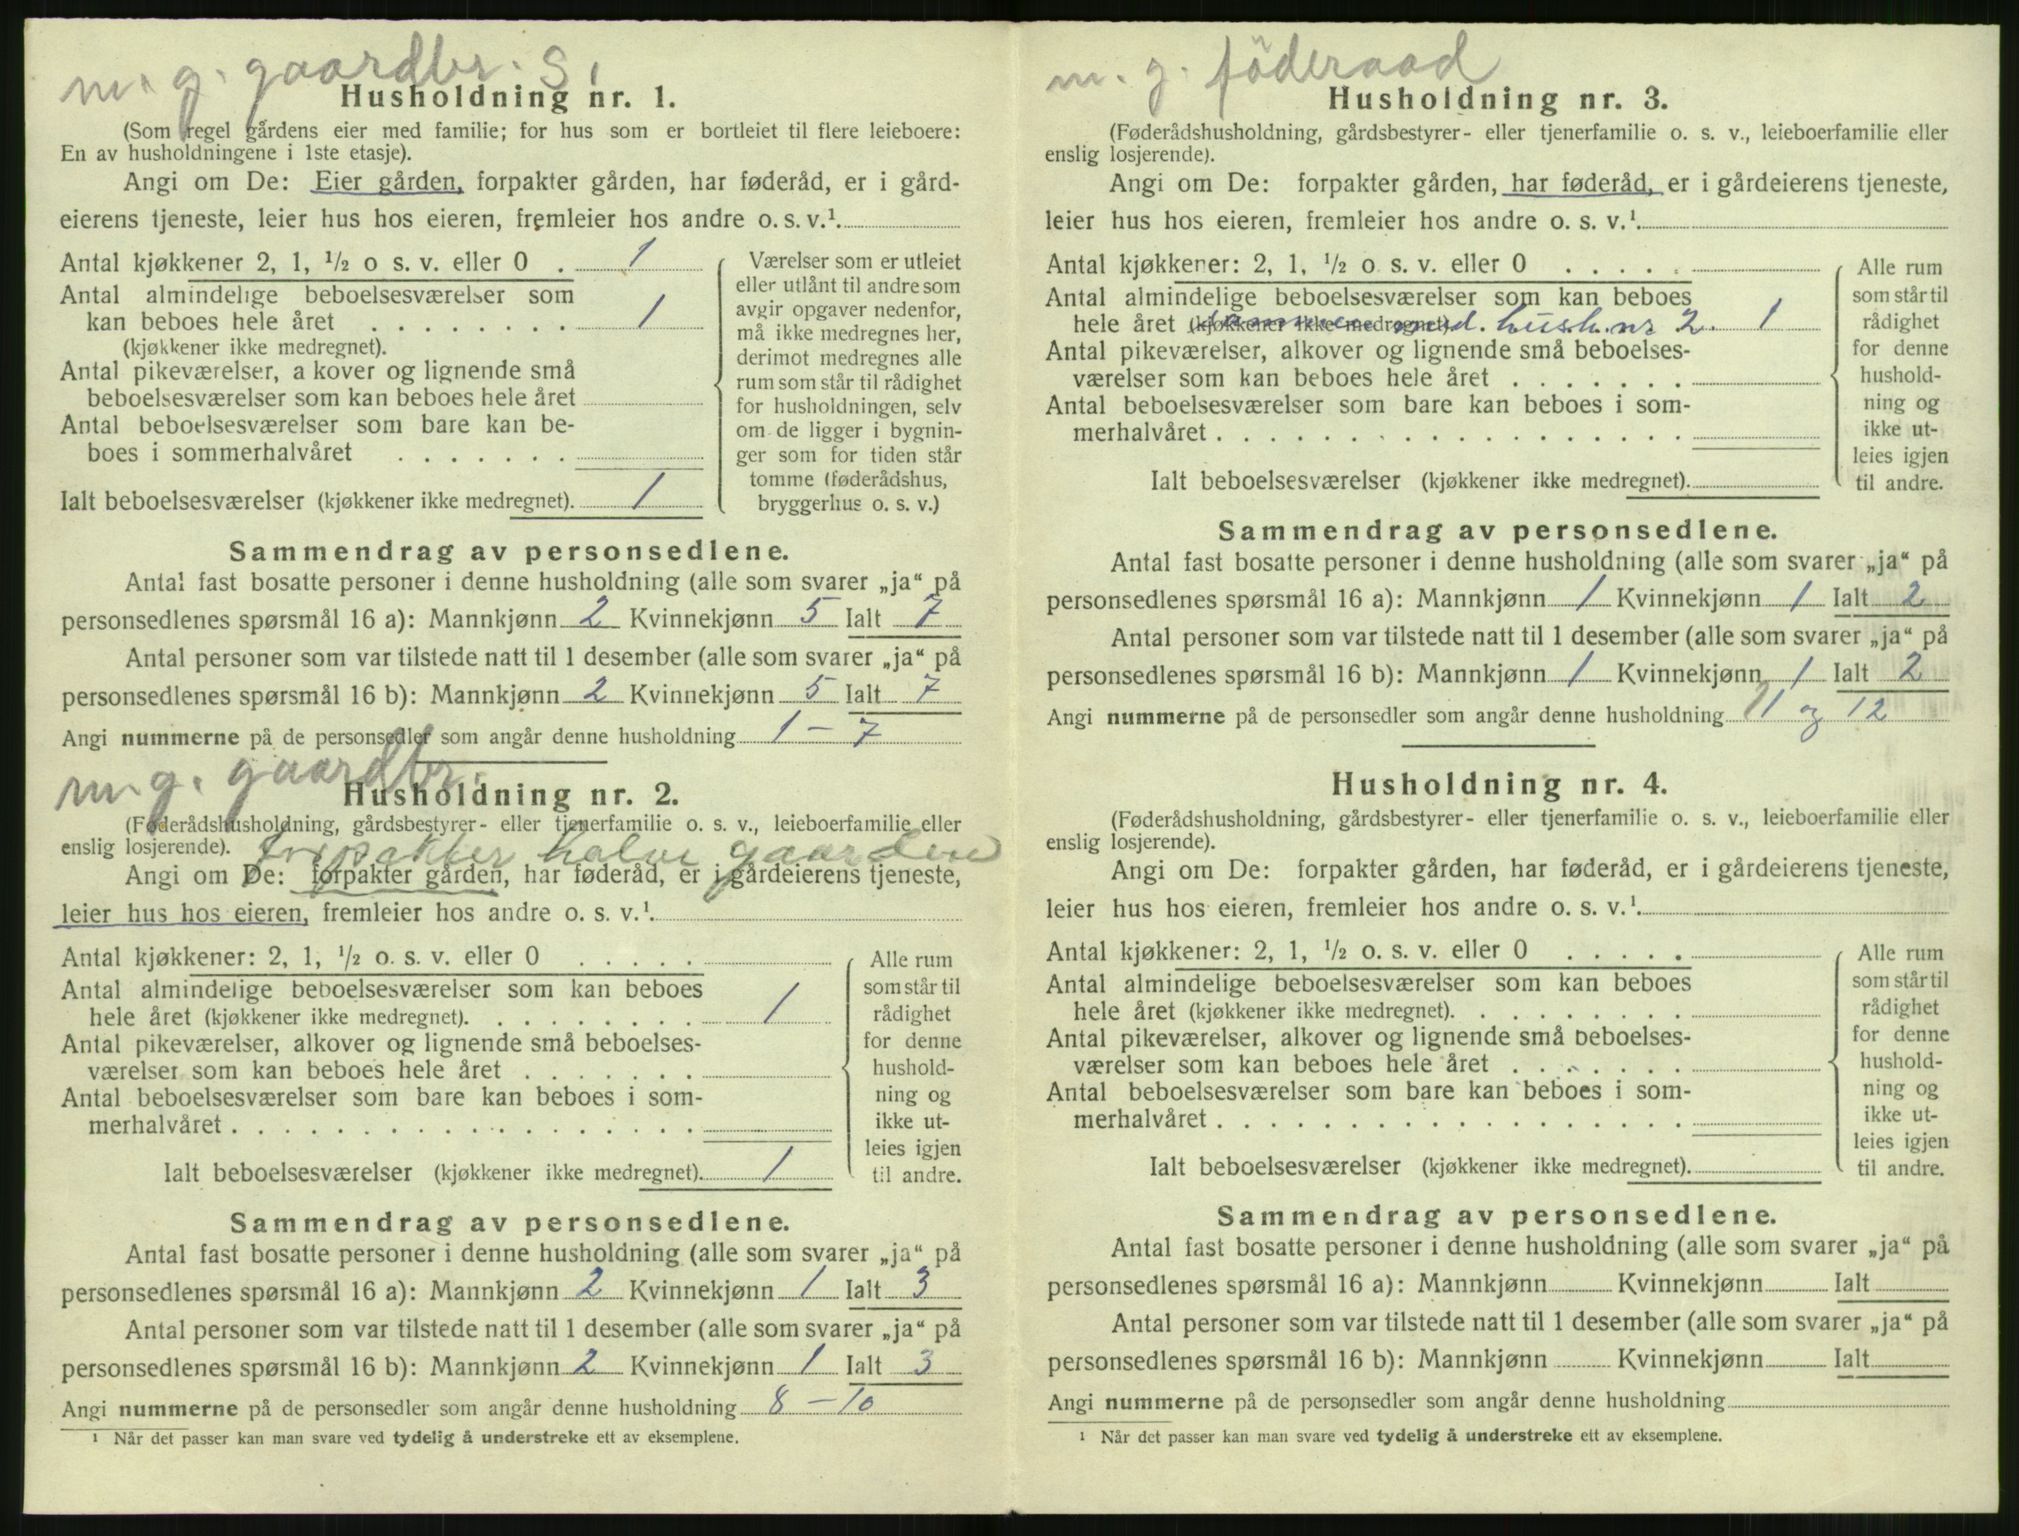 m. g. gaardbr. S.
Husholdning nr. 1.
(Som regel gårdens eier med familie; for hus som er bortleiet til flere leieboere:
En av husholdningene i 1ste etasje).
Angi om De: Eier gården, forpakter gården, har føderåd, er i gård-
eierens tjeneste, leier hus hos eieren, fremleier hos andre o. s. v.¹
Antal kjøkkener 2, 1, ½ o s. v. eller 0 . 1
Antal almindelige beboelsesværelser som
kan beboes hele året . . . . . . . . 1
(kjøkkener ikke medregnet).
Antal pikeværelser, a kover og lignende små
beboelsesværelser som kan beboes hele året
Antal beboelsesværelser som bare kan be-
boes i sommerhalvåret . . . . . . .
Ialt beboelsesværelser (kjøkkener ikke medregnet). 1
Værelser som er utleiet
eller utlånt til andre som
avgir opgaver nedenfor,
må ikke medregnes her,
derimot medregnes alle
rum som står til rådighet
for husholdningen, selv
om de ligger i bygnin-
ger som for tiden står
tomme (føderådshus,
bryggerhus o. s. v.)
Sammendrag av personsedlene.
Antal fast bosatte personer i denne husholdning (alle som svarer „ja“ på
personsedlenes spørsmål 16 a): Mannkjønn 2 Kvinnekjønn 5 Ialt 7
Antal personer som var tilstede natt til 1 desember (alle som svarer „ja“ på
personsedlenes spørsmål 16 b): Mannkjønn 2 Kvinnekjønn 5 Ialt 7
Angi nummerne på de personsedler som angår denne husholdning 1 - 7
m. g. gaardbr.
Husholdning nr. 2.
(Føderådshusholdning, gårdsbestyrer- eller tjenerfamilie o. s. v., leieboerfamilie eller
enslig losjerende). forpakter halve gaarden
Angi om De: forpakter gården, har føderåd, er i gårdeierens tjeneste,
leier hus hos eieren, fremleier hos andre o. s. v.¹
Antal kjøkkener: 2, 1, ½ o. s. v. eller 0 . . . . .
Antal almindelige beboelsesværelser som kan beboes
hele året (kjøkkener ikke medregnet). . . . . . . . . 1
Antal pikeværelser, alkover og lignende små beboelses-
værelser som kan beboes hele året . . . . . . .
Antal beboelsesværelser som bare kan beboes i som-
merhalvåret . . . . . . . . . . . . . . . . . .
Ialt beboelsesværelser (kjøkkener ikke medregnet). 1
Alle rum
som står til
rådighet
for denne
hushold-
ning og
ikke ut-
leies igjen
til andre.
Sammendrag av personsedlene.
Antal fast bosatte personer i denne husholdning (alle som svarer „ja“ på
personsedlenes spørsmål 16 a): Mannkjønn 2 Kvinnekjønn 1 Ialt 3
Antal personer som var tilstede natt til 1 desember (alle som svarer „ja“ på
personsedlenes spørsmål 16 b): Mannkjønn 2 Kvinnekjønn 1 Ialt 3
Angi nummerne på de personsedler som angår denne husholdning 8 - 10
¹ Når det passer kan man svare ved tydelig å understreke ett av eksemplene.
m. g. föderaad
Husholdning nr. 3.
(Føderådshusholdning, gårdsbestyrer- eller tjenerfamilie o. s. v., leieboerfamilie eller
enslig losjerende).
Angi om De: forpakter gården, har føderåd, er i gårdeierens tjeneste,
leier hus hos eieren, fremleier hos andre o. s. v.¹
Antal kjøkkener: 2, 1, ½ o. s. v. eller 0 . . . . .
Antal almindelige beboelsesværelser som kan beboes
hele året (kjøkkener ikke medregnet) sammen med hush. nr 2. 1
Antal pikeværelser, alkover og lignende små beboelses-
værelser som kan beboes hele året . . . . . . .
Antal beboelsesværelser som bare kan beboes i som-
merhalvåret . . . . . . . . . . . . . . . . . .
Ialt beboelsesværelser (kjøkkener ikke medregnet).
Alle rum
som står til
rådighet
for denne
hushold-
ning og
ikke ut-
leies igjen
til andre.
Sammendrag av personsedlene.
Antal fast bosatte personer i denne husholdning (alle som svarer „ja“ på
personsedlenes spørsmål 16 a): Mannkjønn 1 Kvinnekjønn 1 Ialt 2
Antal personer som var tilstede natt til 1 desember (alle som svarer „ja“ på
personsedlenes spørsmål 16 b): Mannkjønn 1 Kvinnekjønn 1 Ialt 2
Angi nummerne på de personsedler som angår denne husholdning 11 og 12
Husholdning nr. 4.
(Føderådshusholdning, gårdsbestyrer- eller tjenerfamilie o. s. v., leieboerfamilie eller
enslig losjerende).
Angi om De: forpakter gården, har føderåd, er i gårdeierens tjeneste,
leier hus hos eieren, fremleier hos andre o. s. v.¹
Antal kjøkkener: 2, 1, ½ o. s. v. eller 0 . . . . .
Antal almindelige beboelsesværelser som kan beboes
hele året (kjøkkener ikke medregnet). . . . . . . . .
Antal pikeværelser, alkover og lignende små beboelses-
værelser som kan beboes hele året . . . . . . .
Antal beboelsesværelser som bare kan beboes i som-
merhalvåret . . . . . . . . . . . . . . . . . .
Ialt beboelsesværelser (kjøkkener ikke medregnet).
Alle rum
som står til
rådighet
for denne
hushold-
ning og
ikke ut-
leies igjen
til andre.
Sammendrag av personsedlene.
Antal fast bosatte personer i denne husholdning (alle som svarer „ja“ på
personsedlenes spørsmål 16 a): Mannkjønn Kvinnekjønn Ialt
Antal personer som var tilstede natt til 1 desember (alle som svarer „ja“ på
personsedlenes spørsmål 16 b): Mannkjønn Kvinnekjønn Ialt
Angi nummerne på de personsedler som angår denne husholdning
¹ Når det passer kan man svare ved tydelig å understreke ett av eksemplene.